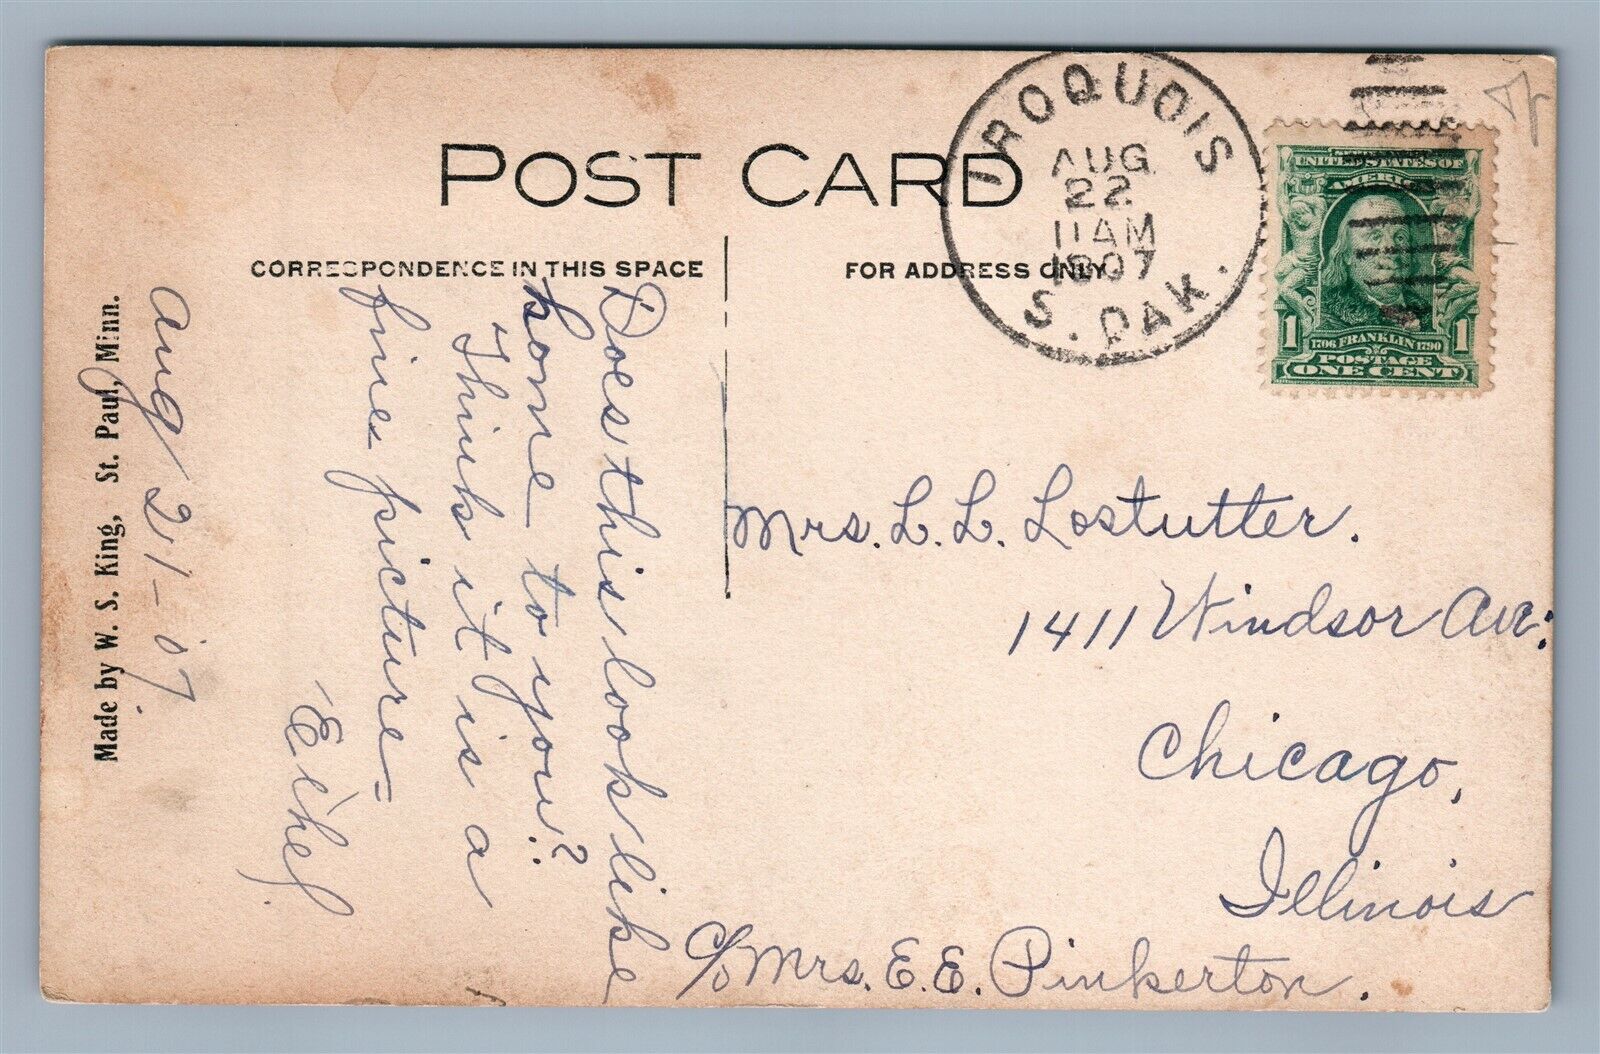 POST CARD
CORRESPONDENCE IN THIS SPACE
FOR ADDRESS ONLY.
IROQUOIS
AUG
22
11AM
1907
S. DAK.
UNITED STATES OF
AMERICA
1 1706 FRANKLIN 1790 1
POSTAGE
ONE CENT
Made by W. S. King, St. Paul, Minn.
Aug 21-07.
Does this look like
home to you?
Think it is a
fine picture =
Ethel.
Mrs. L. L. Lostutter.
1411 Windsor Ave:
Chicago,
Illinois
c/o Mrs. E. E. Pinkerton.